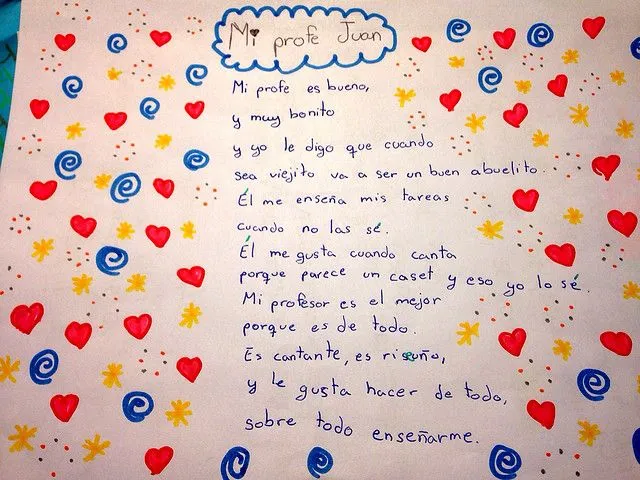 Mi profe Juan
Mi profe es bueno,
y muy bonito
y yo le digo que cuando
sea viejito va a ser un buen abuelito.
Él me enseña mis tareas
cuando no las sé.
Él me gusta cuando canta
porque parece un caset y eso yo lo sé.
Mi profesor es el mejor
porque es de todo.
Es cantante, es risueño,
y le gusta hacer de todo,
sobre todo enseñarme.